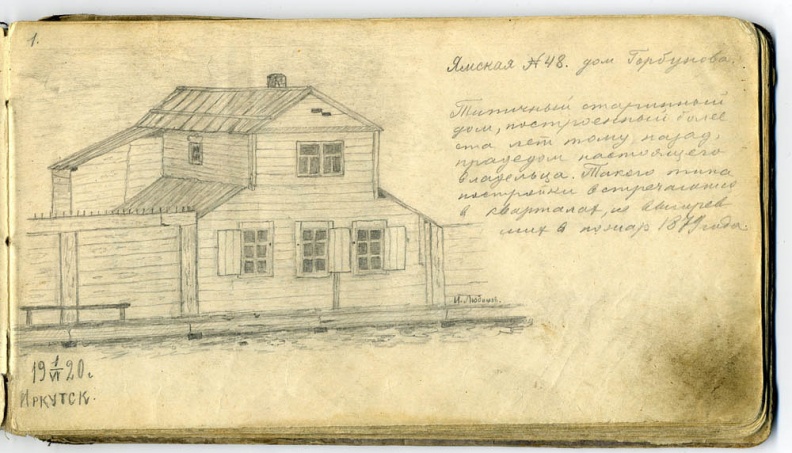 1.
Ямская № 48. дом Горбунова.
Типичный старинный
дом, построенный более
ста лет тому назад,
прадедом настоящего
владельца. Такого типа
постройки встречались
в кварталах, не выгорев
ших в пожар 1879 года.
19 1/VI 20 г.
Иркутск.